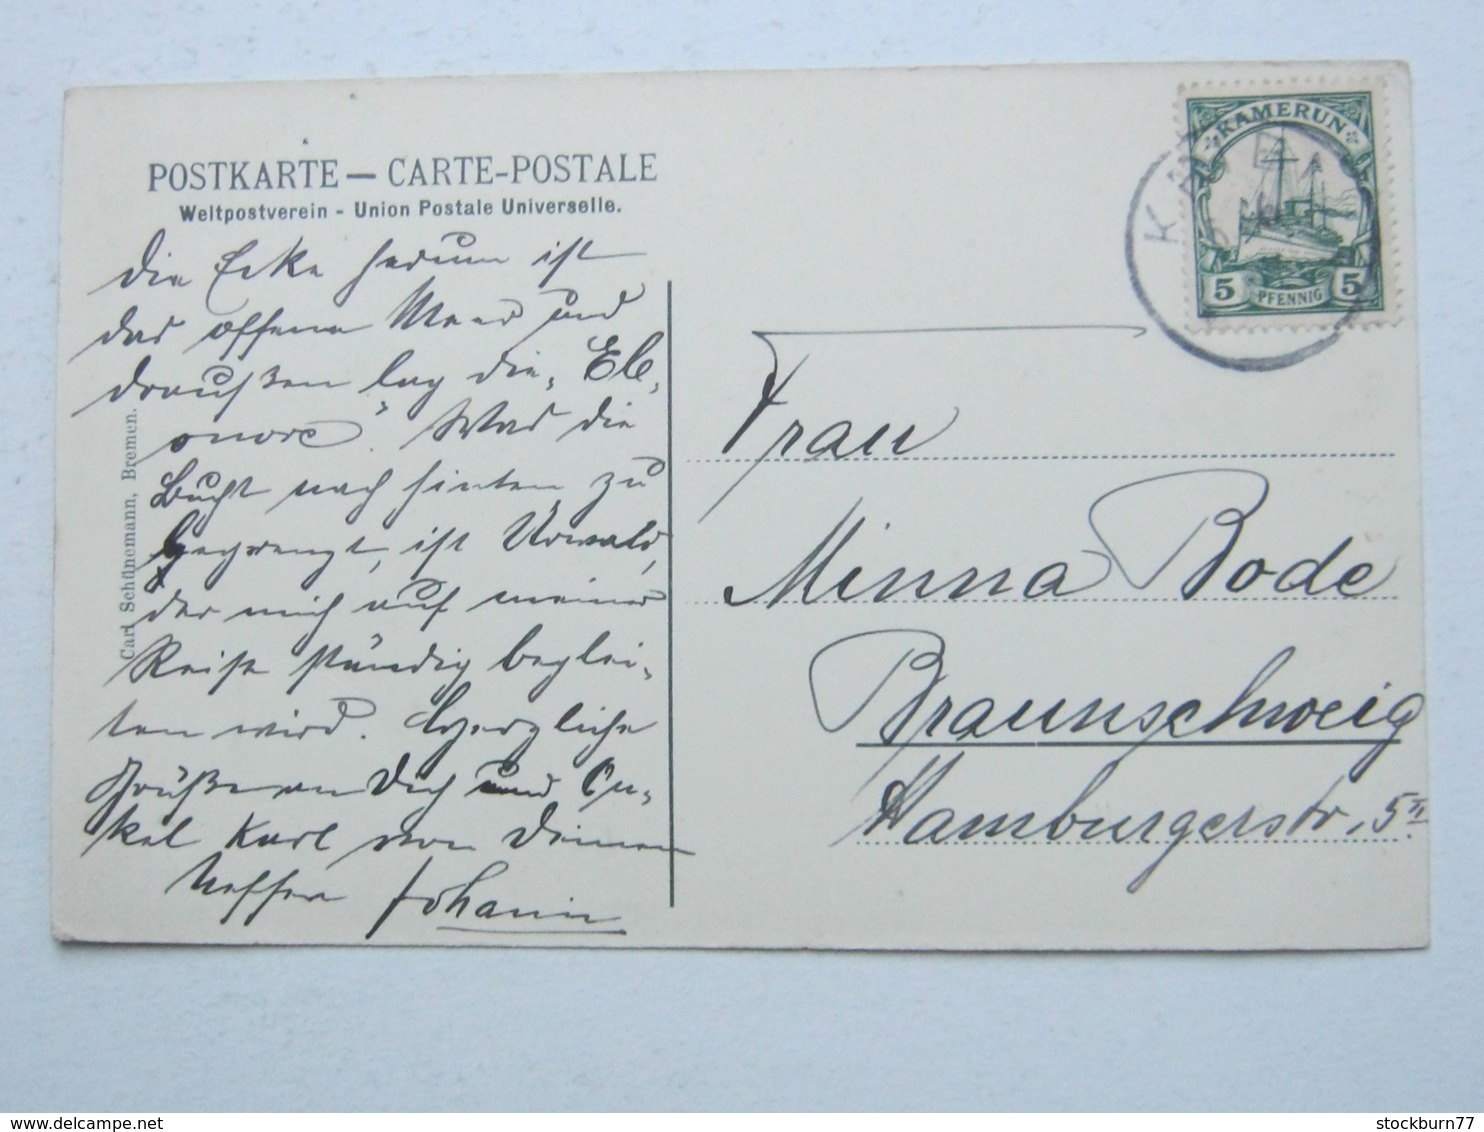 POSTKARTE — CARTE-POSTALE
Weltpostverein - Union Postale Universelle.
die Ecke herum ist
das offene Meer und
draußen lag die „Ele„
onore“. Was die
Bucht nach hinten zu
begrenzt, ist Urwald,
der mich auf meiner
Reise ständig beglei-
ten wird. Herzliche
Grüße an Dich und On-
kel Karl von Deinem
Neffen Johann
Carl Schünemann, Bremen.
KAMERUN
5 PFENNIG 5
K
Frau
Minna Bode
Braunschweig
Hamburgerstr. 5 II
stockburn77